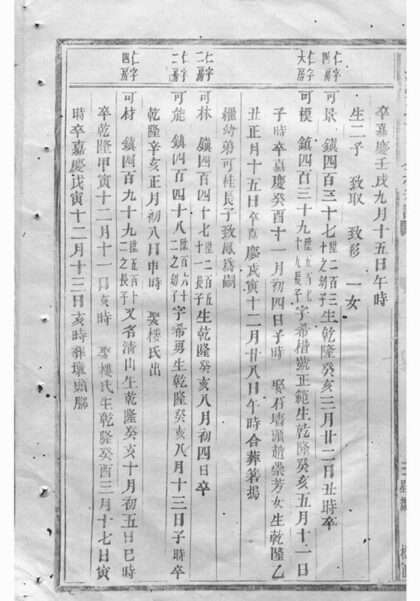 卒嘉慶壬戌九月十五日午時
生二子 致取 致彩 一女
仁字四房
可景 鎮四百三十七 之幼子 生乾隆癸亥三月廿二日丑時卒
仁字大房
可模 鎮四百三十九 長子 字希楷號正範生乾隆癸亥五月十一日
子時卒嘉慶癸酉十一月初四日子時 娶石墻頭趙榮芳女生乾隆乙
丑正月十五日卒嘉慶戊寅十二月廿八日午時合葬箬塢
繼幼弟可桂長子致鳳為嗣
仁字二房
可林 鎮四百四十七 長子 生乾隆癸亥八月初四日卒
仁字二房
可施 鎮四百四十八 二之幼子 字希勇生乾隆癸亥八月十三日子時卒
乾隆辛亥正月初八日申時 娶樓氏出
仁字四房
可材 鎮四百九十九 二之長子 又名清山生乾隆癸亥十月初五日巳時
卒乾隆甲寅十二月十一日亥時 娶樓氏生乾隆癸酉三月十七日寅
時卒嘉慶戊寅十二月十三日亥時葬墳頭腳